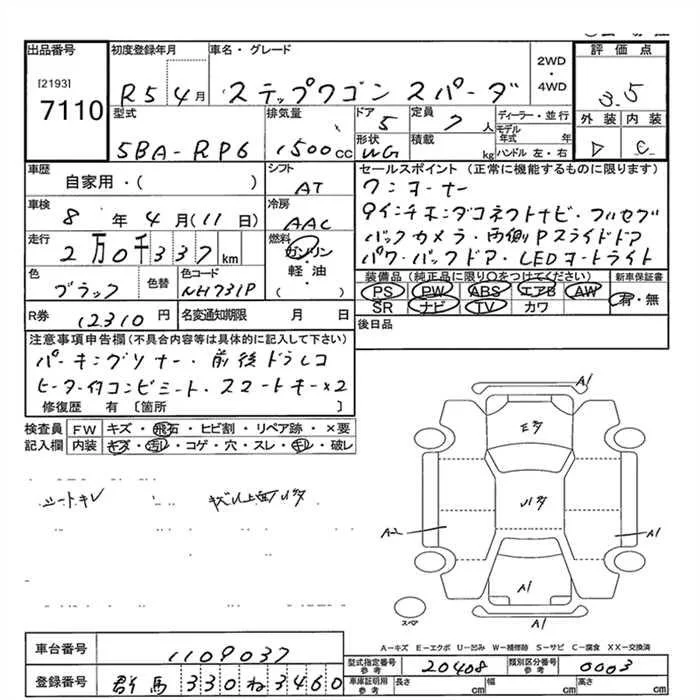 出品番号
[2193]
7110
初度登録年月
R5 4月
車名・グレード
ステップワゴン スパーダ
2WD
・
4WD
評価点
3.5
型式
5BA-RP6
排気量
1500cc
ドア
5
形状
WG
定員
7人
積載
kg
ディーラー・並行
モデル年式 年
ハンドル 左・右
外装 内装
D C
車歴
自家用・( )
シフト
AT
車検
8年4月(11日)
冷房
AAC
走行
2万0千337km
燃料
ガソリン
・
軽・油
( )
色
ブラック
色替
色コード
NH731P
R券
12310円
名変通知期限 月 日
セールスポイント (正常に機能するものに限ります)
ワンオーナー
9インチホンダコネクトナビ・フルセグ
バックカメラ・両側Pスライドドア
パワーバックドア・LEDオートライト
装備品 (純正品に限り○をつけてください)
PS PW ABS エアB AW
SR ナビ TV カワ
新車保証書
有・無
後日品
注意事項申告欄(不具合内容等は具体的に記入して下さい)
パーキングソナー・前後ドラレコ
ヒーター付コンビシート・スマートキー×2
修復歴 有 〔箇所 〕
検査員記入欄
FW キズ・飛石・ヒビ割・リペア跡・×要
内装 キズ・汚レ・コゲ・穴・スレ・キレ・破レ
シートキレ
A1
A2
A1
A1
A1
スペア
A-キズ E-エクボ U-凹み W-補修跡 S-サビ C-腐食 XX-交換済
車台番号
1109037
登録番号
群馬 330 ね 3460
型式指定番号
参考
20408
類別区分番号
参考
0003
車庫証明用
参考
長さ cm 幅 cm 高さ cm